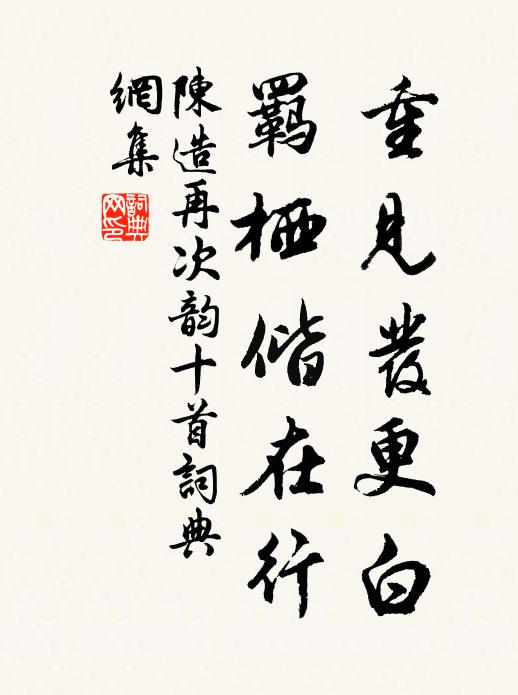 重見發更白
羇栖偕在行
陳造再次韵十首詞典
網集
詞典
网印